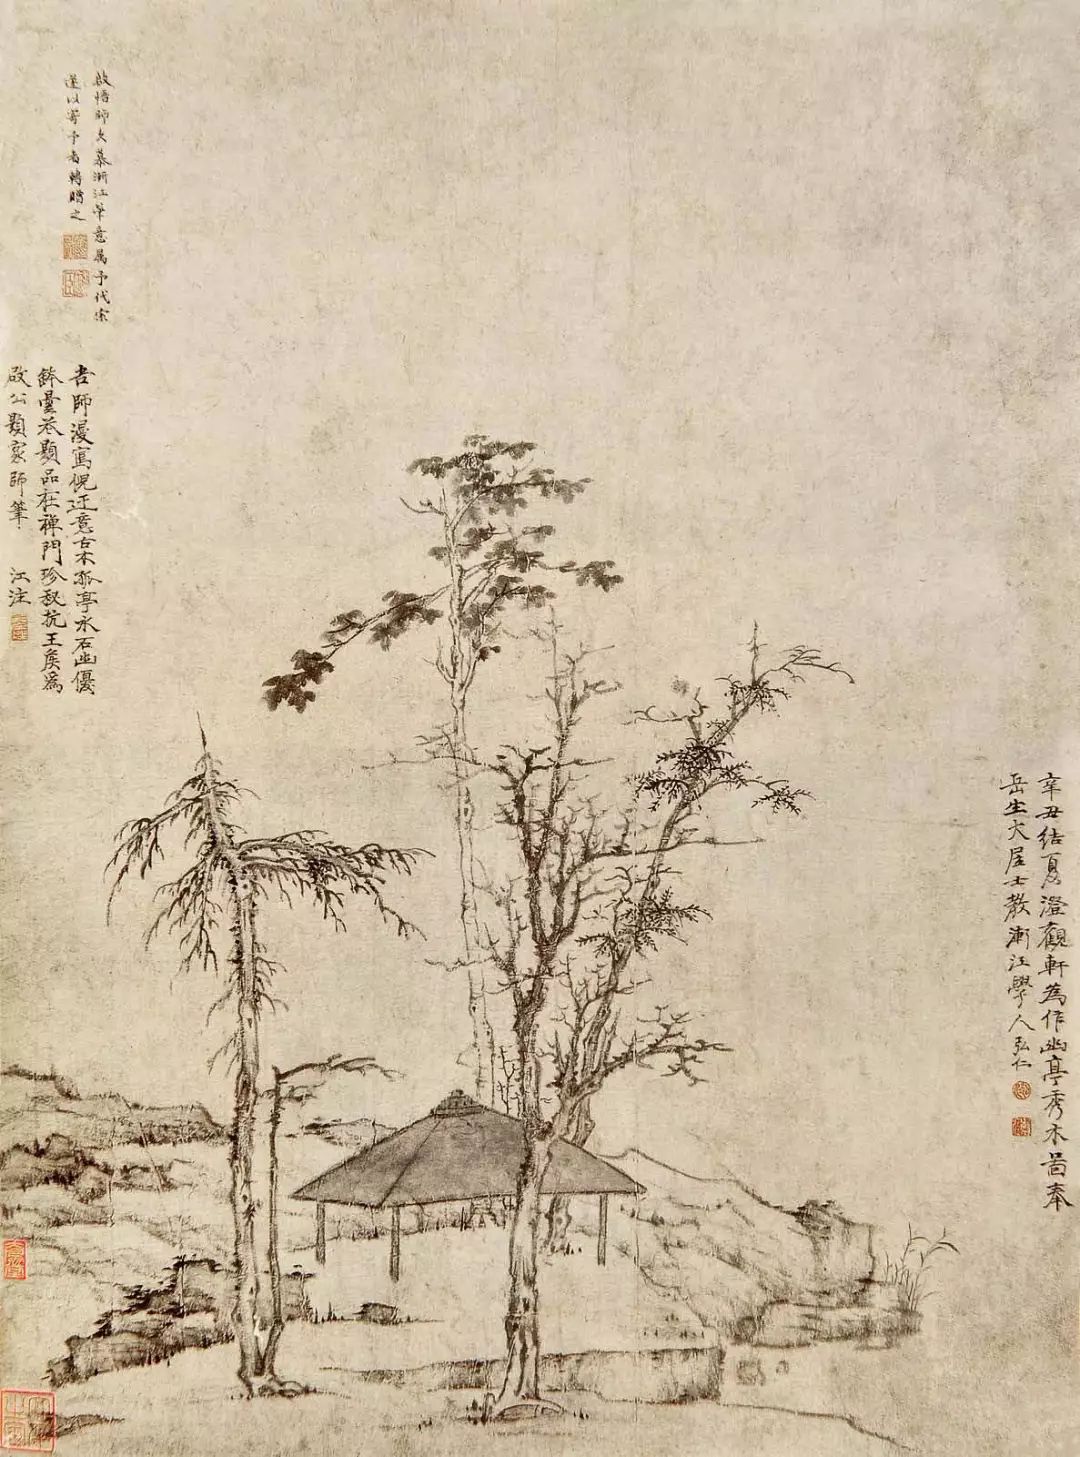 辛丑結夏澄觀軒為作幽亭秀木啚奉
岳生大居士教漸江學人弘仁
啟悟師久慕漸江筆意属予代索
遂以寄予者轉贈之
吉師漫寫倪迂意古木孤亭水石幽優
鉢曇花顯品在禅門珍秘抗王侯為
啟公題家師筆
江注